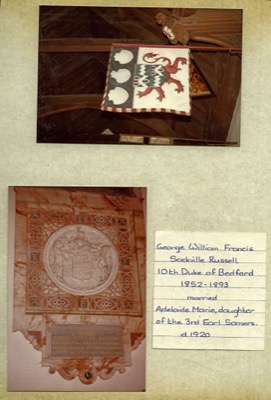 George William Francis
Sackville Russell
10th Duke of Bedford
1852-1893
married
Adelaide Marie, daughter
of the 3rd Earl Somers.
d 1920